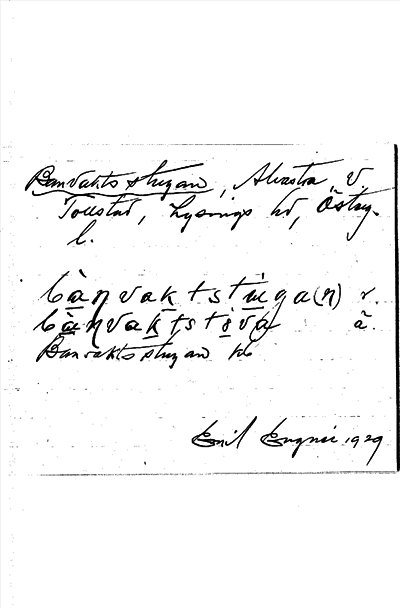 Banvaktsstugan, Alvastra, V.
Tollstad, Lysings hd, Östg.
l.
bànvaktstuga(n) r.
bànvaktstova ã.
Banvaktsstugan kb
Emil 1929